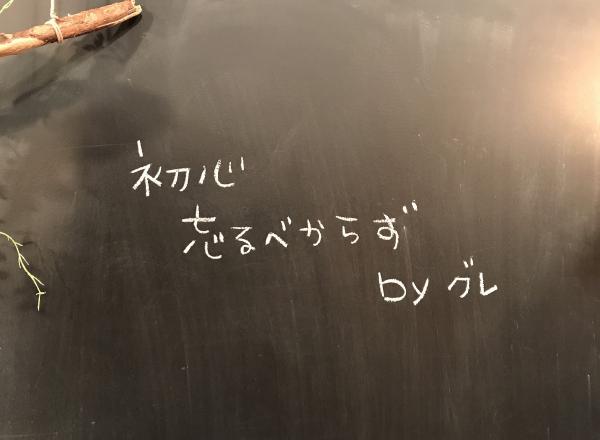 初心
忘るべからず
by グレ